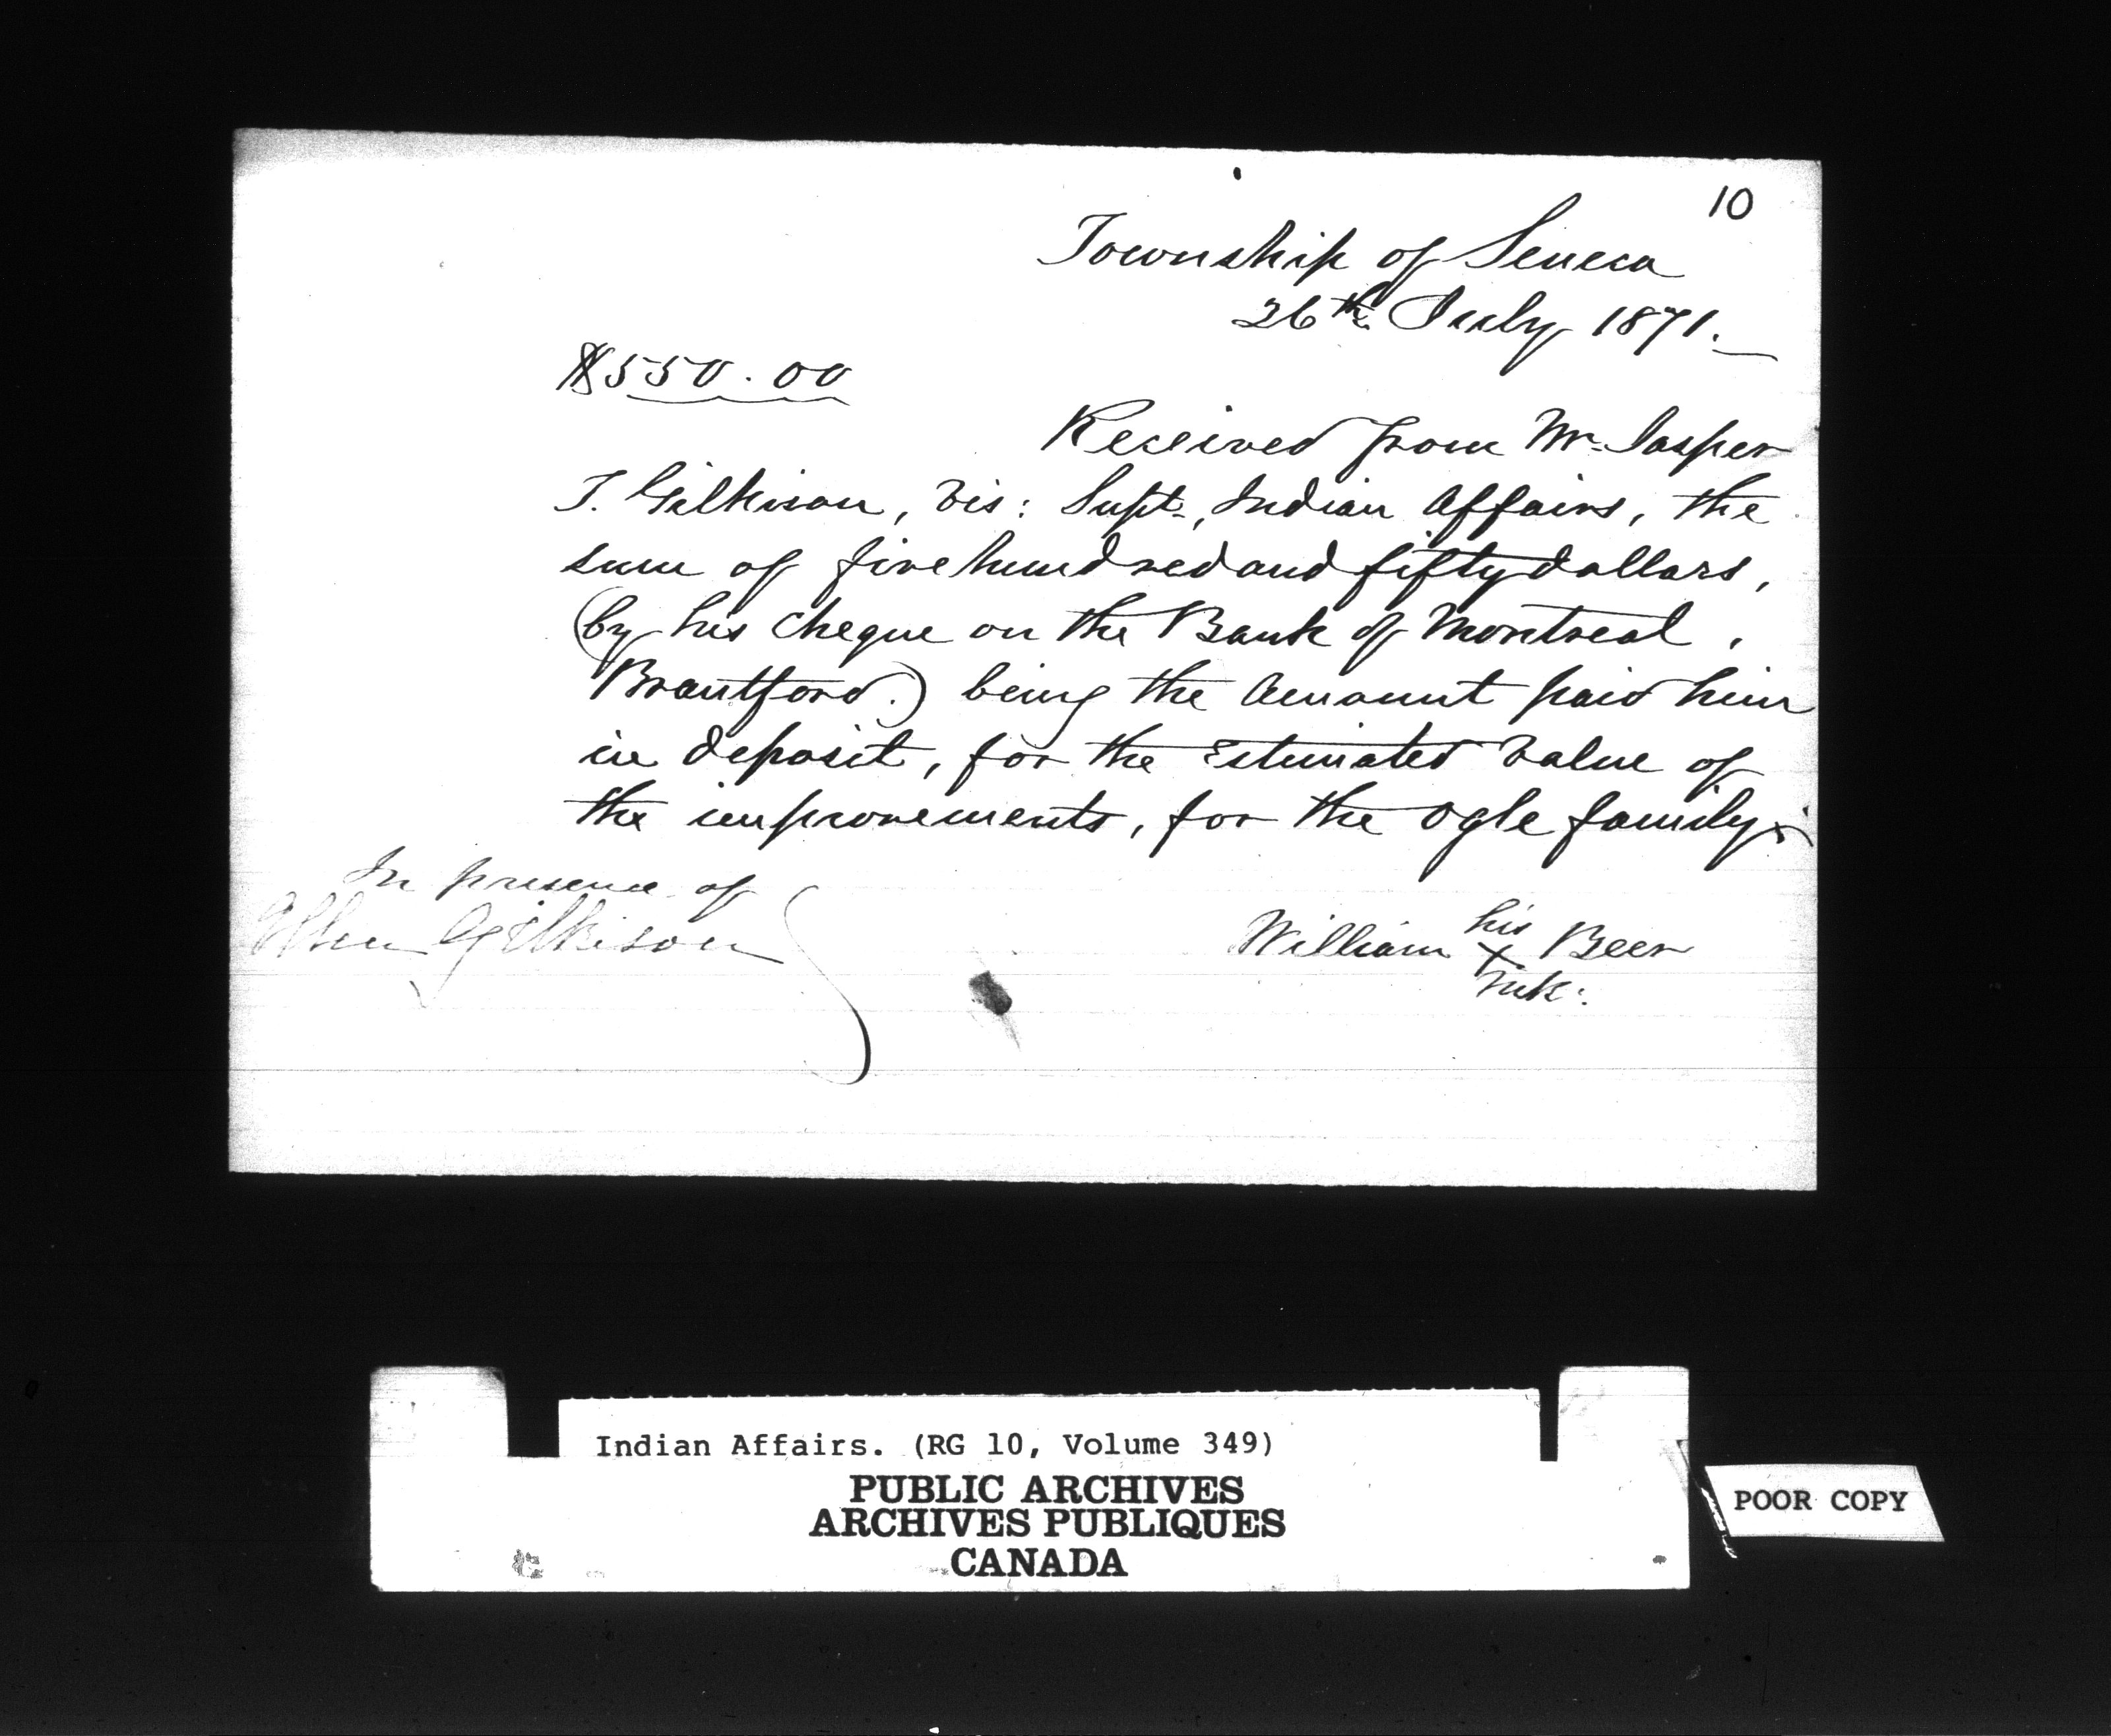 10
Township of Seneca
26th July 1871.
$550.00
Received from Mr. Jasper
T. Gilkison, Vis: Supt., Indian Affairs, the
sum of five hundred and fifty dollars,
(by his cheque on the Bank of Montreal,
Brantford.) being the amount paid him
in deposit, for the Estimated value of
the improvements, for the Ogle family.
In presence of
Gilkison
William his x Beer
mk:
Indian Affairs. (RG 10, Volume 349)
PUBLIC ARCHIVES
ARCHIVES PUBLIQUES
CANADA
POOR COPY